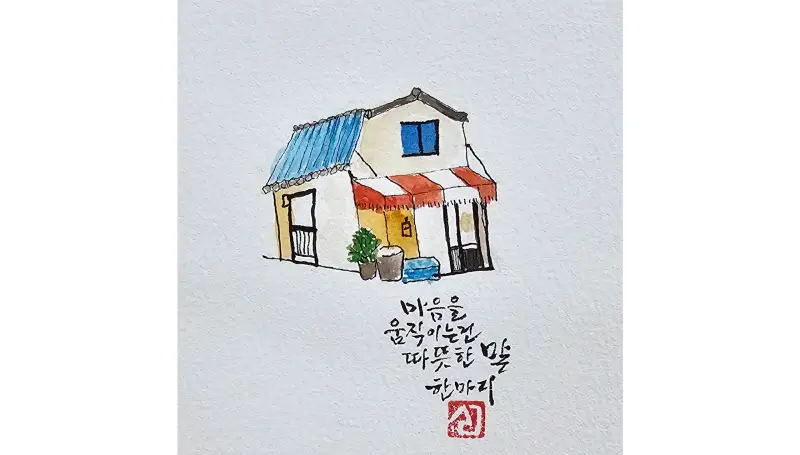 마음을
움직이는건
따뜻한 말
한마디
심